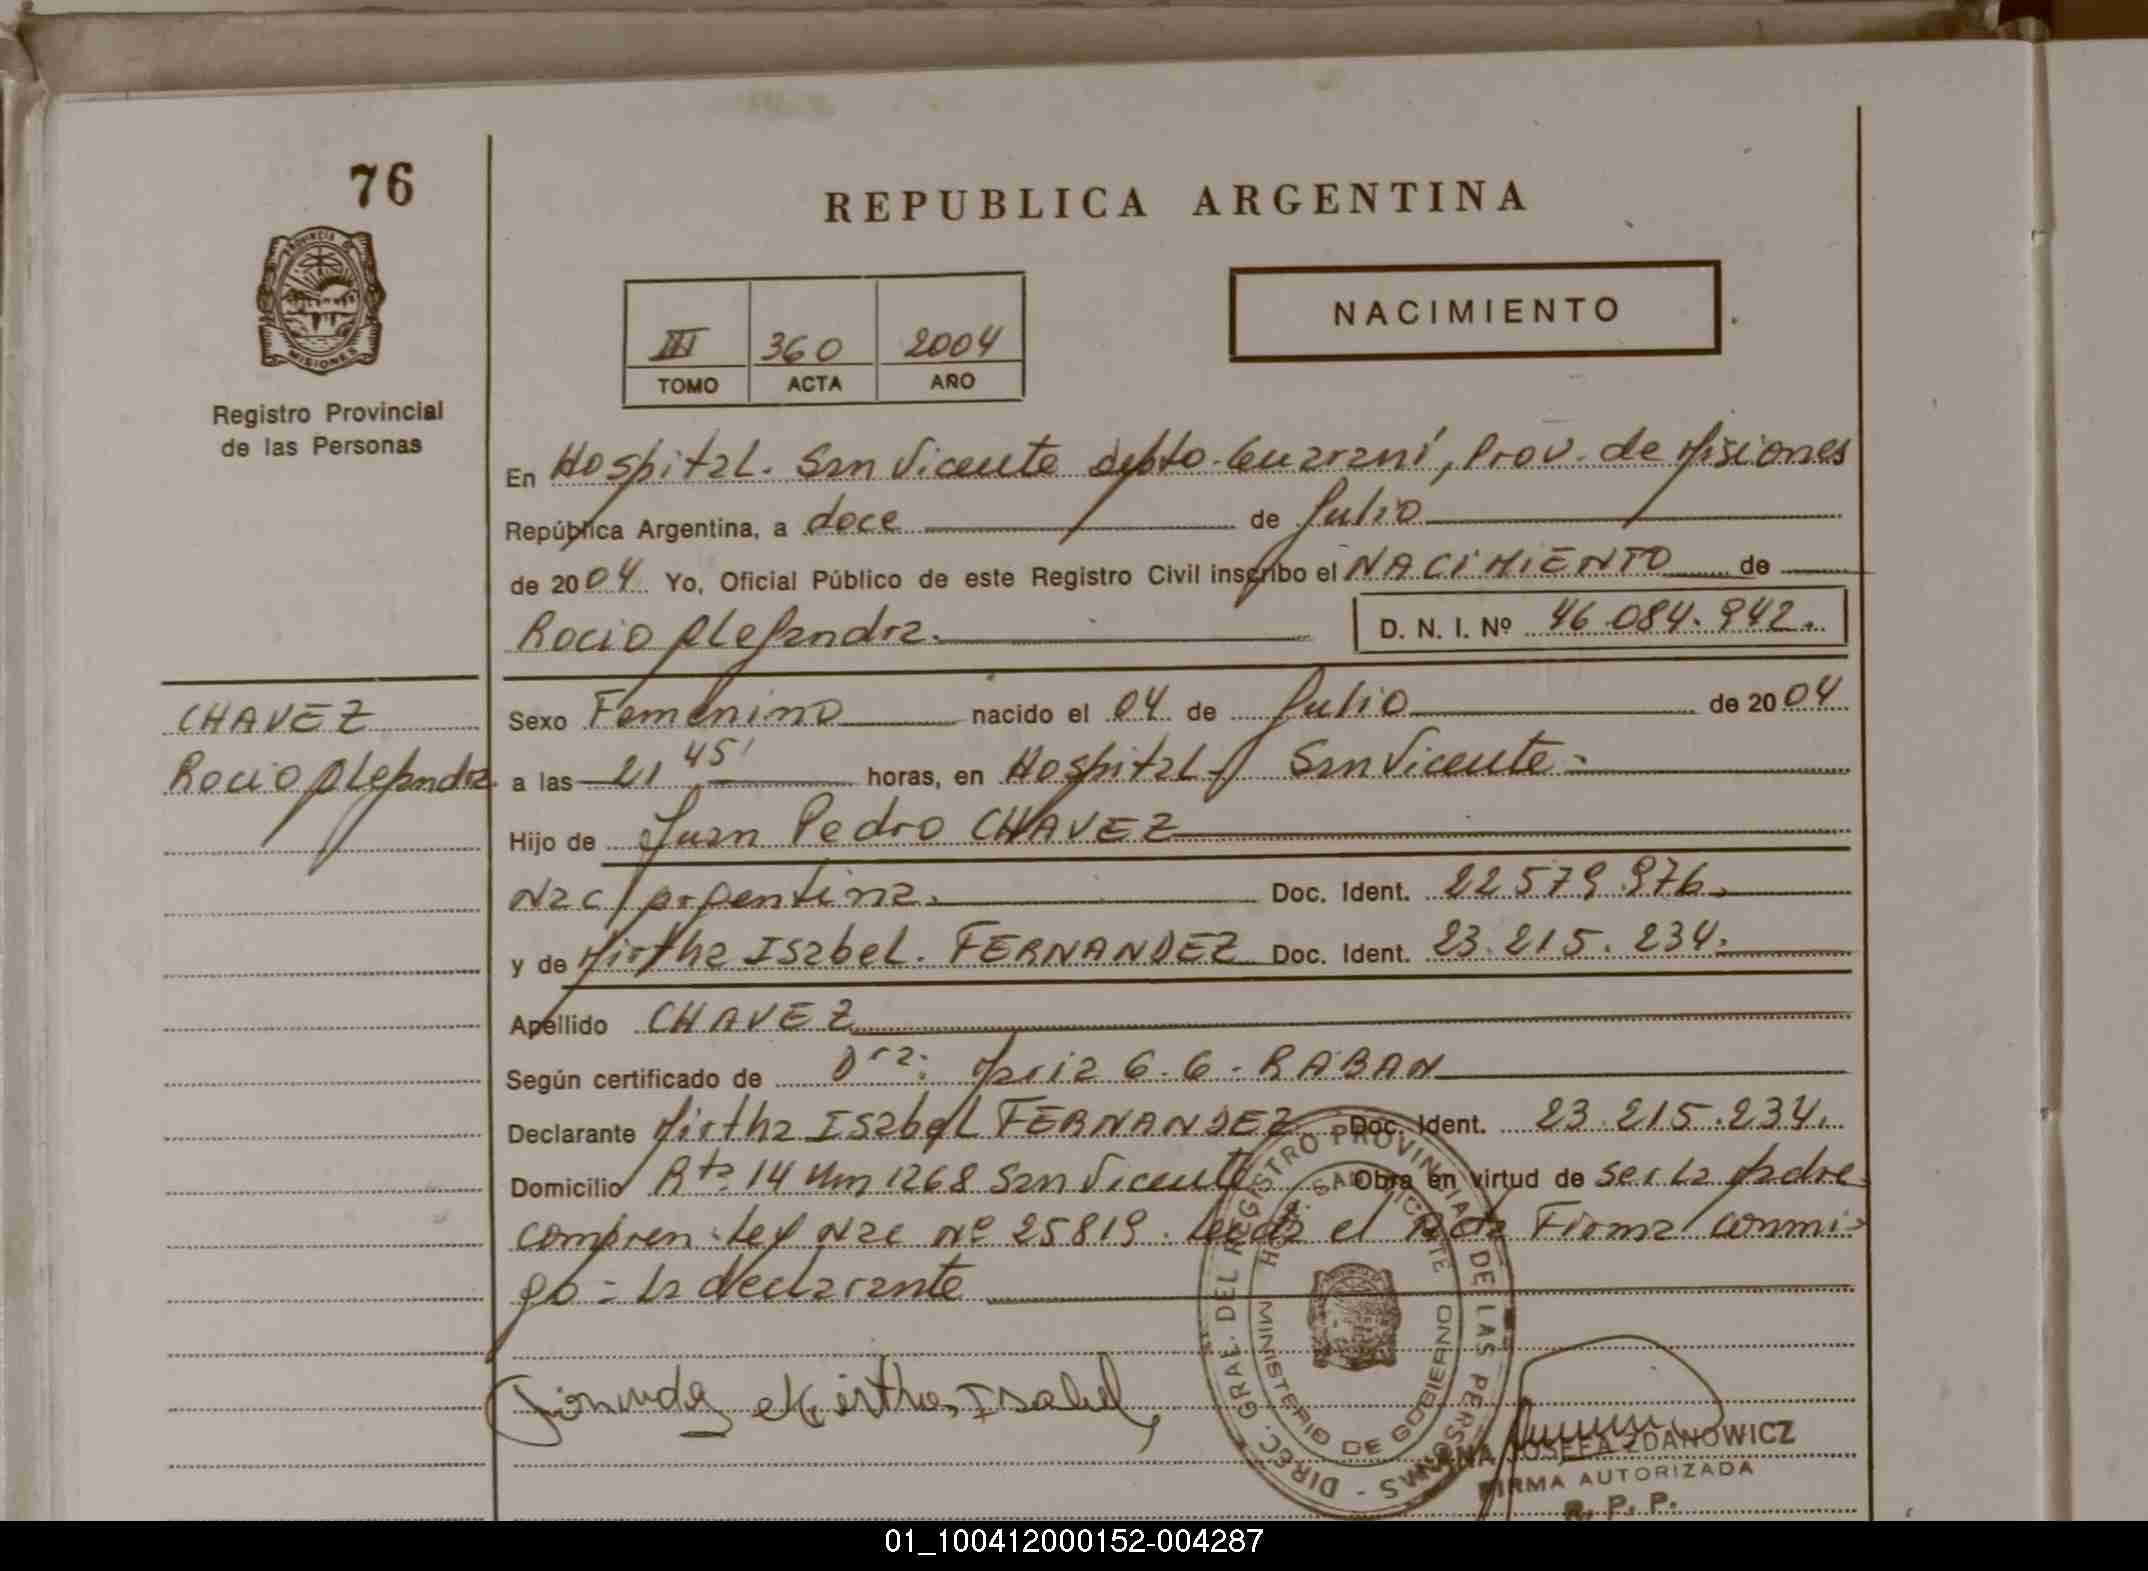 76
REPUBLICA ARGENTINA
PROVINCIA DE
MISIONES
Registro Provincial
de las Personas
NACIMIENTO
III 360 2004
TOMO ACTA AÑO
En Hospital. San Vicente depto. Guaraní, Prov. de Misiones
República Argentina, a doce de Julio
de 2004 Yo, Oficial Público de este Registro Civil inscribo el NACIMIENTO de
Rocio Alejandra. D. N. I. Nº 46.084.942.
CHAVEZ
Rocio Alejandra
Sexo Femenino nacido el 04 de Julio de 2004
a las 21 45' horas, en Hospital San Vicente
Hijo de Juan Pedro CHAVEZ
Nac/ Argentina. Doc. Ident. 22579.976.
y de Mirtha Isabel. FERNANDEZ Doc. Ident. 23.215.234.
Apellido CHAVEZ
Según certificado de Dra: Maria G. G. RABAN
Declarante Mirtha Isabel FERNANDEZ Doc. Ident. 23.215.234.
Domicilio Rta 14 Km 1268 San Vicente Obra en virtud de ser la Madre
compren. Ley Nac Nº 25819. Leída el Acta Firma conmi-
go = la declarante
Mirtha Isabel
DIREC. GRAL. DEL REGISTRO PROVINCIAL DE LAS PERSONAS -
SAN VICENTE
MINISTERIO DE GOBIERNO
ANA JOSEFA ZDANOWICZ
FIRMA AUTORIZADA
R. P. P.
01_100412000152-004287